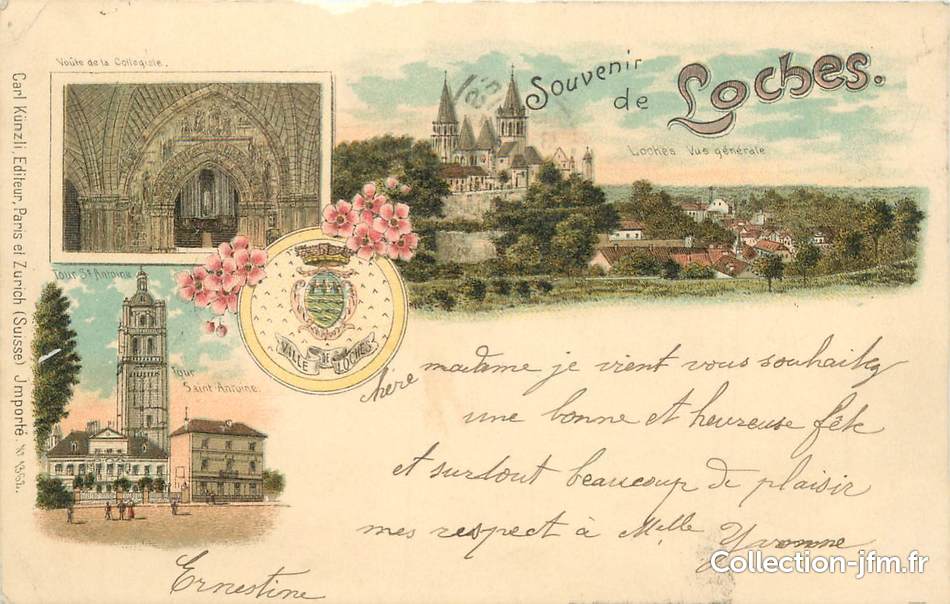 Voûte de la Collégiale.
Souvenir
de
Loches.
Loches Vue générale
Tour St Antoine
Tour
Saint Antoine.
VILLE DE LOCHES
Carl Künzli, Editeur, Paris et Zurich (Suisse) Jmporté.
chère madame je vient vous souhaiter
une bonne et heureuse fête
et surtout beaucoup de plaisir
mes respect à Mlle Yvonne
Ernestine
Collection-jfm.fr